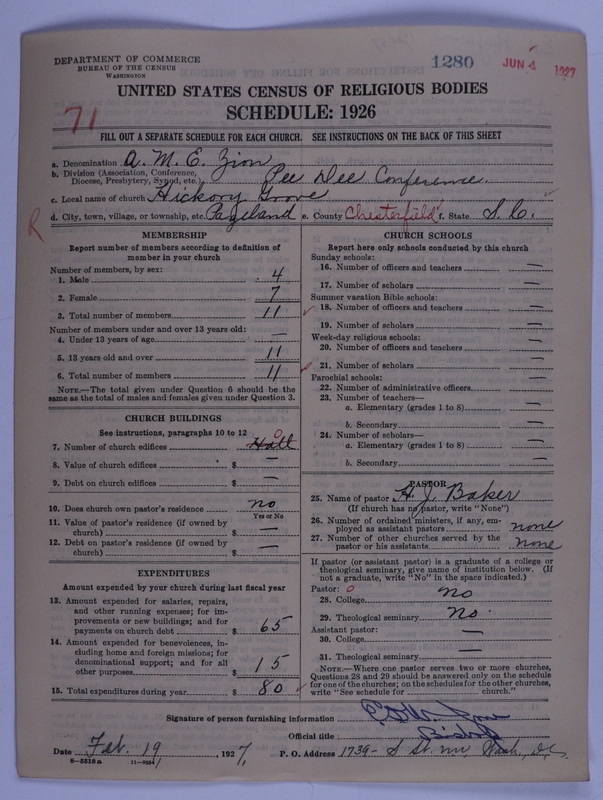 DEPARTMENT OF COMMERCE
BUREAU OF THE CENSUS
WASHINGTON
1280
JUN 4 1927
UNITED STATES CENSUS OF RELIGIOUS BODIES
SCHEDULE: 1926
71
FILL OUT A SEPARATE SCHEDULE FOR EACH CHURCH. SEE INSTRUCTIONS ON THE BACK OF THIS SHEET
a. Denomination A. M. E. Zion
b. Division (Association, Conference, Diocese, Presbytery, Synod, etc.) Pee Dee Conference.
c. Local name of church Hickory Grove
R
d. City, town, village, or township, etc. Pageland e. County Chesterfield f. State S. C.
MEMBERSHIP
Report number of members according to definition of
member in your church
Number of members, by sex:
1. Male 4
2. Female 7
3. Total number of members 11
Number of members under and over 13 years old:
4. Under 13 years of age —
5. 13 years old and over 11
6. Total number of members 11
NOTE.—The total given under Question 6 should be the
same as the total of males and females given under Question 3.
CHURCH BUILDINGS
See instructions, paragraphs 10 to 12
7. Number of church edifices Hall 0
8. Value of church edifices $ —
9. Debt on church edifices $ —
10. Does church own pastor's residence no
Yes or No
11. Value of pastor's residence (if owned by
church) $ —
12. Debt on pastor's residence (if owned by
church) $ —
EXPENDITURES
Amount expended by your church during last fiscal year
13. Amount expended for salaries, repairs,
and other running expenses; for im-
provements or new buildings; and for
payments on church debt $ 65
14. Amount expended for benevolences, in-
cluding home and foreign missions; for
denominational support; and for all
other purposes $ 15
15. Total expenditures during year $ 80
CHURCH SCHOOLS
Report here only schools conducted by this church
Sunday schools:
16. Number of officers and teachers —
17. Number of scholars —
Summer vacation Bible schools:
18. Number of officers and teachers —
19. Number of scholars —
Week-day religious schools:
20. Number of officers and teachers —
21. Number of scholars —
Parochial schools:
22. Number of administrative officers —
23. Number of teachers—
a. Elementary (grades 1 to 8) —
b. Secondary —
24. Number of scholars—
a. Elementary (grades 1 to 8) —
b. Secondary —
PASTOR
25. Name of pastor H. J. Baker
(If church has no pastor, write "None")
26. Number of ordained ministers, if any, em-
ployed as assistant pastors none
27. Number of other churches served by the
pastor or his assistants None
If pastor (or assistant pastor) is a graduate of a college or
theological seminary, give name of institution below. (If
not a graduate, write "No" in the space indicated.)
Pastor: 0
28. College no
29. Theological seminary no.
Assistant pastor:
30. College —
31. Theological seminary —
NOTE.—Where one pastor serves two or more churches,
Questions 28 and 29 should be answered only on the schedule
for one of the churches; on the schedules for the other churches,
write "See schedule for church."
Signature of person furnishing information
Official title Bishop
Date Feb. 19, 1927. P. O. Address 1739- S St. nw, Wash, D.C.
8-5518a